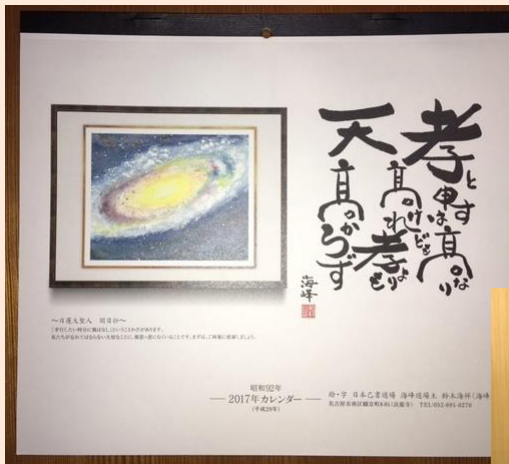 孝と申すは高なり
天高けれども孝よりも
高からず
海峰
～日蓮大聖人　開目抄～
昭和92年
2017年カレンダー
(平成29年)
絵・字 日本己書道場 海峰道場主 鈴木海祥(海峰